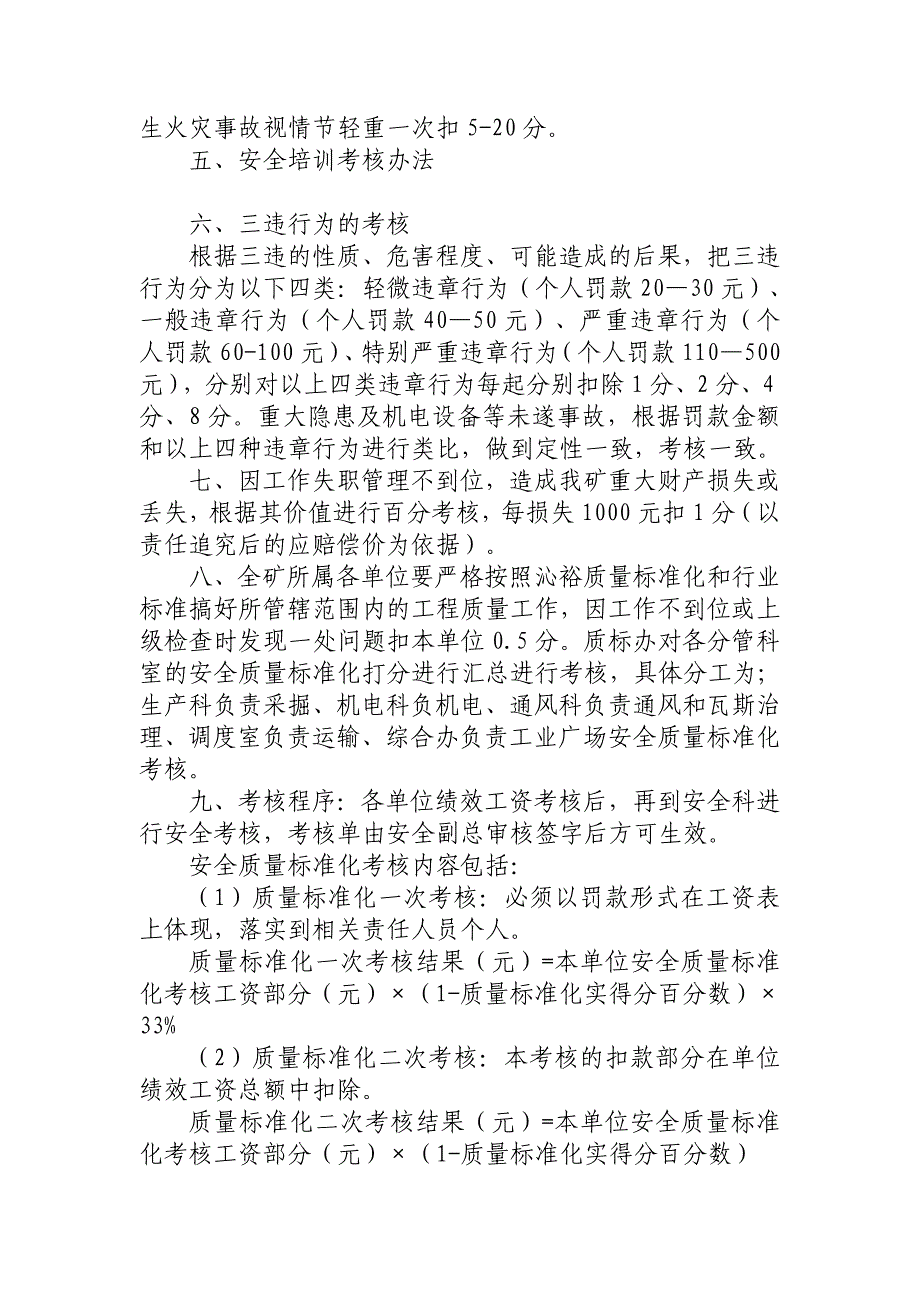 生火灾事故视情节轻重一次扣 5-20 分。
五、安全培训考核办法
六、三违行为的考核
根据三违的性质、危害程度、可能造成的后果，把三违
行为分为以下四类：轻微违章行为（个人罚款 20—30 元）、
一般违章行为（个人罚款 40—50 元）、严重违章行为（个
人罚款 60-100 元）、特别严重违章行为（个人罚款 110—500
元），分别对以上四类违章行为每起分别扣除 1 分、2 分、4
分、8 分。重大隐患及机电设备等未遂事故，根据罚款金额
和以上四种违章行为进行类比，做到定性一致，考核一致。
七、因工作失职管理不到位，造成我矿重大财产损失或
丢失，根据其价值进行百分考核，每损失 1000 元扣 1 分（以
责任追究后的应赔偿价为依据）。
八、全矿所属各单位要严格按照沁裕质量标准化和行业
标准搞好所管辖范围内的工程质量工作，因工作不到位或上
级检查时发现一处问题扣本单位 0.5 分。质标办对各分管科
室的安全质量标准化打分进行汇总进行考核，具体分工为；
生产科负责采掘、机电科负机电、通风科负责通风和瓦斯治
理、调度室负责运输、综合办负责工业广场安全质量标准化
考核。
九、考核程序：各单位绩效工资考核后，再到安全科进
行安全考核，考核单由安全副总审核签字后方可生效。
安全质量标准化考核内容包括：
（1）质量标准化一次考核：必须以罚款形式在工资表
上体现，落实到相关责任人员个人。
质量标准化一次考核结果（元）=本单位安全质量标准
化考核工资部分（元）×（1-质量标准化实得分百分数）×
33%
（2）质量标准化二次考核：本考核的扣款部分在单位
绩效工资总额中扣除。
质量标准化二次考核结果（元）=本单位安全质量标准
化考核工资部分（元）×（1-质量标准化实得分百分数）